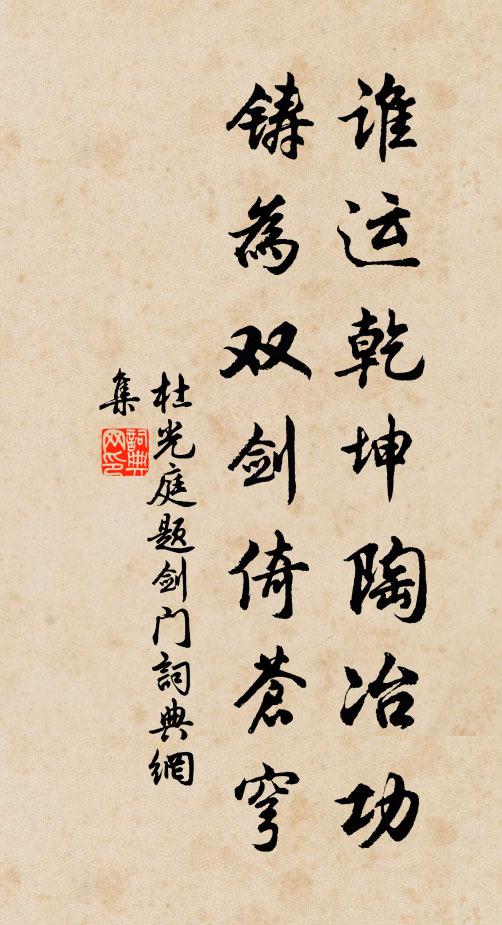 谁运乾坤陶冶功
铸為双剑倚蒼穹
杜光庭题剑门詞典網
集
詞典
网印